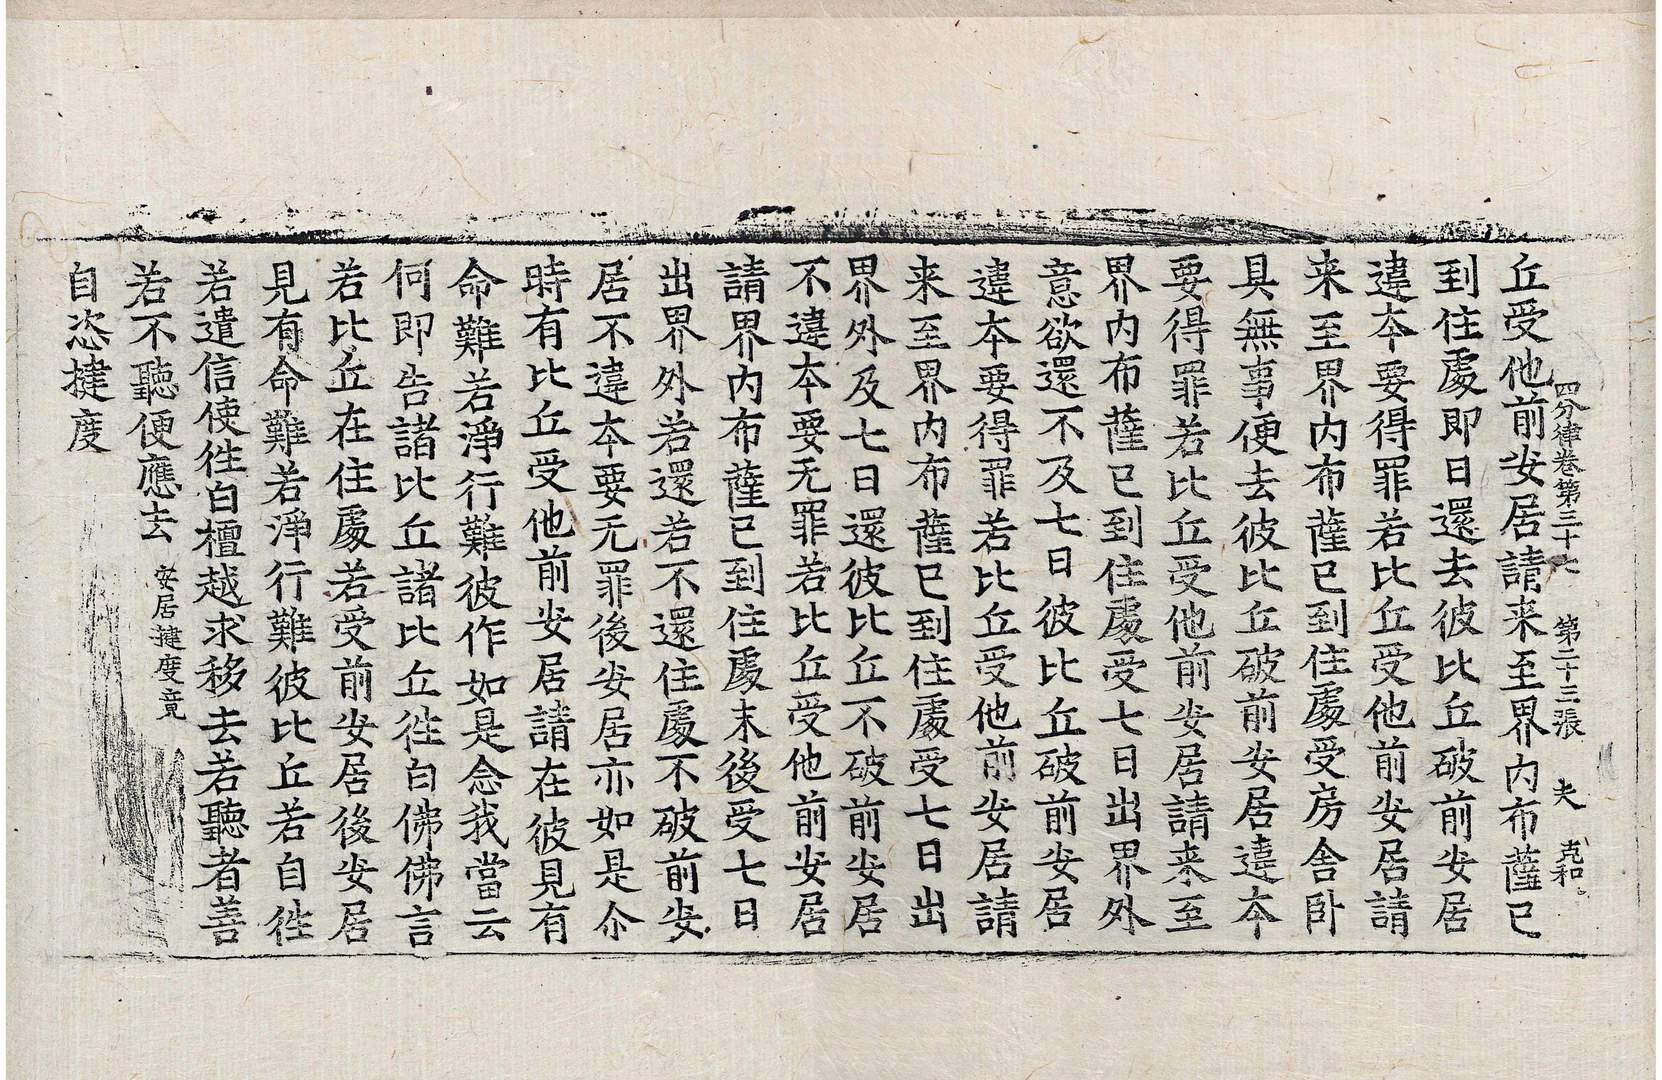 四分律卷第三十七 第二十三張 夫 克和
丘受他前安居請来至界内布薩已
到住處即日還去彼比丘破前安居
違本要得罪若比丘受他前安居請
来至界内布薩已到住處受房舍卧
具無事便去彼比丘破前安居違本
要得罪若比丘受他前安居請来至
界内布薩已到住處受七日出界外
意欲還不及七日彼比丘破前安居
違本要得罪若比丘受他前安居請
来至界内布薩已到住處受七日出
界外及七日還彼比丘不破前安居
不違本要无罪若比丘受他前安居
請界内布薩已到住處末後受七日
出界外若還若不還住處不破前安
居不違本要无罪後安居亦如是尒
時有比丘受他前安居請在彼見有
命難若淨行難彼作如是念我當云
何即告諸比丘諸比丘徃白佛佛言
若比丘在住處若受前安居後安居
見有命難若淨行難彼比丘若自徃
若遣信使徃白檀越求移去若聽者善
若不聽便應去 安居揵度竟
自恣揵度